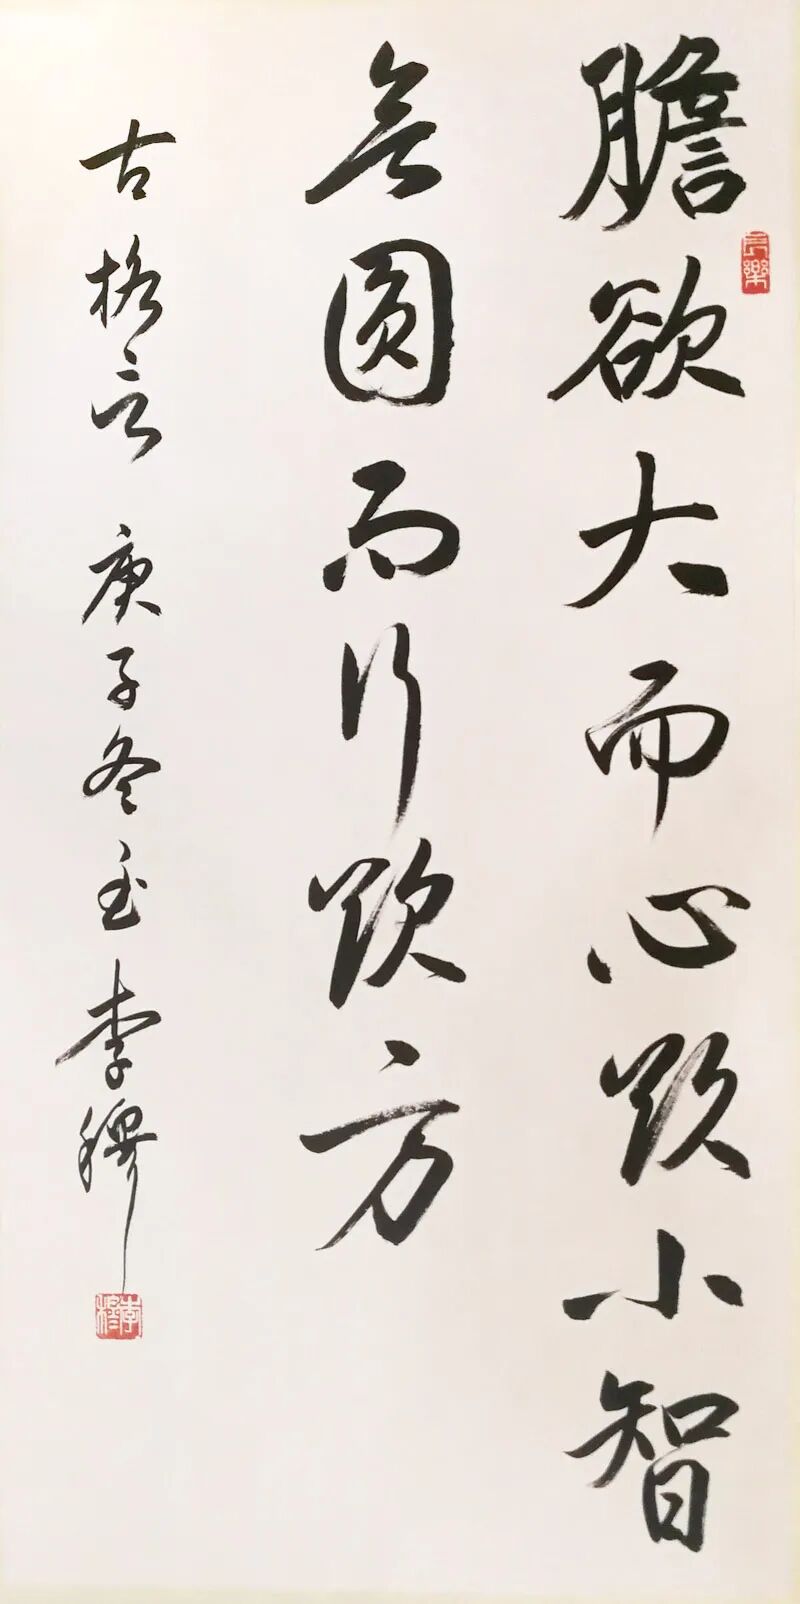 膽欲大而心欲小智
欲圆而行欲方
古格言 庚子冬至 李穆
長樂
李穆